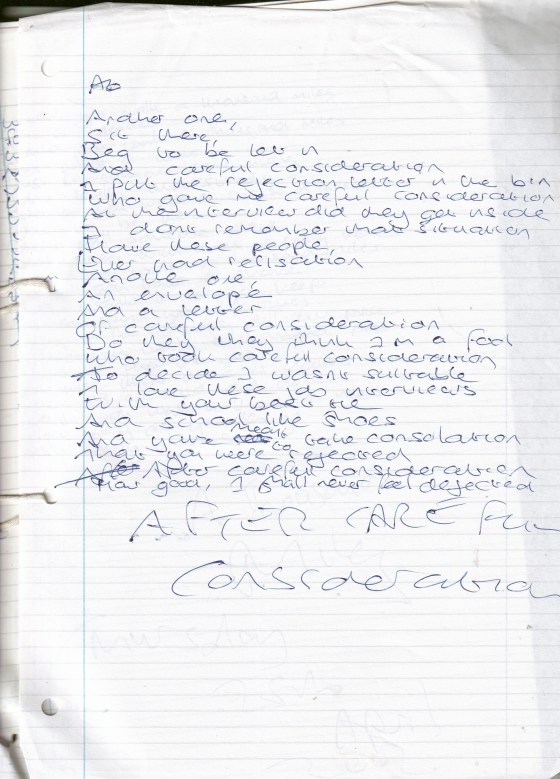 Ab
Another one,
Sit there,
Beg to be let in
And careful consideration
I put the rejection letter n the bin
who gave me careful consideration
At the interview did they get inside
I dont remember that situation
Have these people,
Ever had relisation
Anothe one,
An envelope
And a letter
Of careful consideration
Do they think I'm a fool
who took careful consideration
To decide I wasnt suitable
I love these job interviews
With your best tie
And school like shoes
And your meant to take consolation
That you were rejected
After careful consideration
How good, I shall never feel dejected
AFTER CAREFUL
Consideration